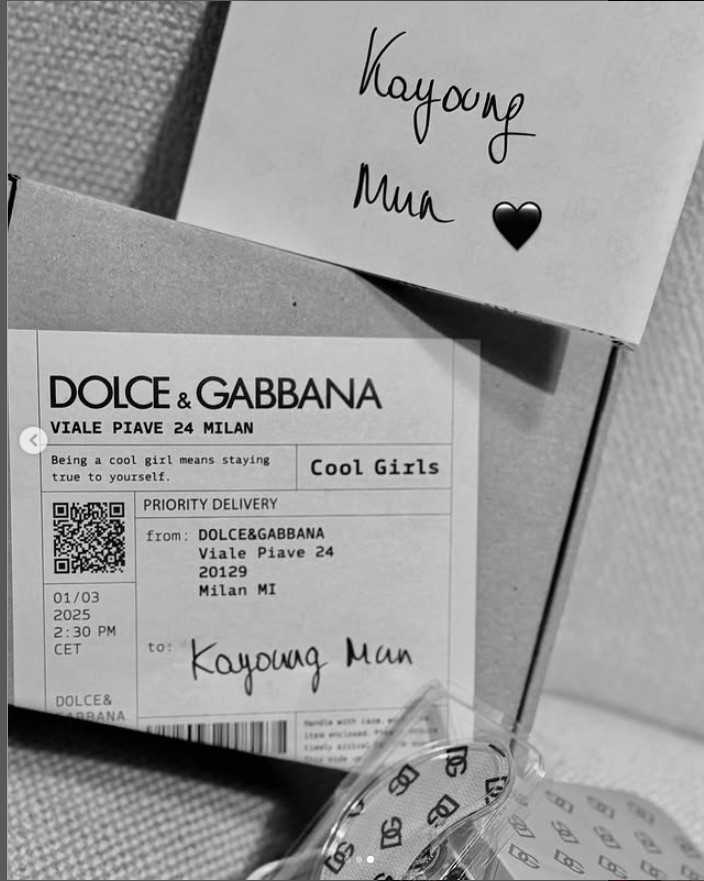 Kayoung
Mun
DOLCE & GABBANA
VIALE PIAVE 24 MILAN
Being a cool girl means staying
true to yourself.
Cool Girls
PRIORITY DELIVERY
from: DOLCE&GABBANA
Viale Piave 24
20129
Milan MI
01/03
2025
2:30 PM
CET
to: Kayoung Mun
DOLCE&
GABBANA
Handle with care,
item enclosed.
timely arrival
This side
DG DG DG